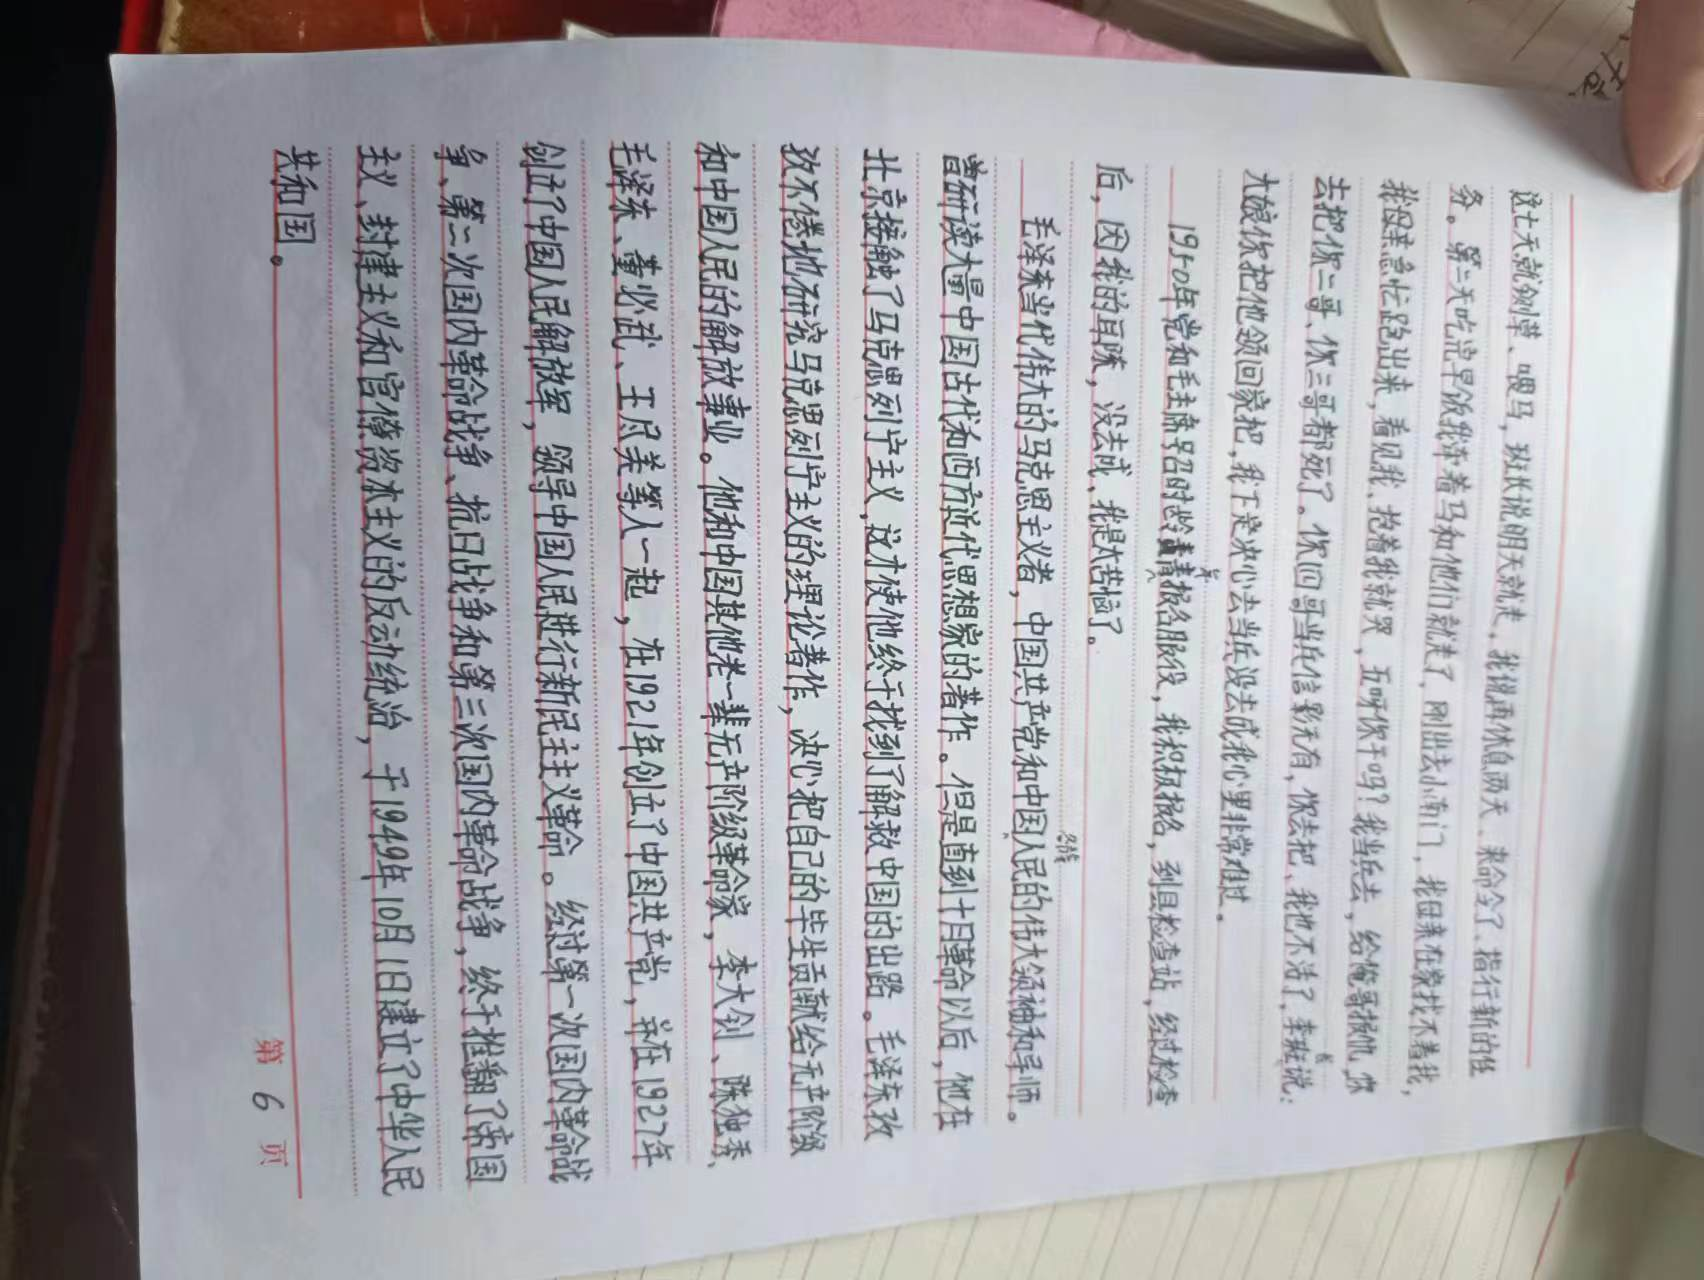 这七天就铡草、喂马，班长说明天就走，我说再休息两天，来命令了，指行新的任
务。第二天吃完早饭我牵着马和他们就走了，刚出去小南门，我母亲在家找不着我，
我母亲急忙跑出来，看见我、抱着我就哭，五呼你干吗？我当兵去，给俺哥报仇，你
去把你二哥、你三哥都死了。你四哥当兵信影无有，你去把、我也不活了，李班长说：
大娘你把他领回家把，我下定决心去当兵没去成我心里非常难过。
1950年党和毛主席号召时龄青年报名服役，我积极报名，到县检查站，经过检查
后，因我的耳聋，没去成、我是大苦恼了。
毛泽东当代伟大的马克思主义者，中国共产党和中国各族人民的伟大领袖和导师。
曾研读大量中国古代和西方近代思想家的著作。但是直到十月革命以后，他在
北京接触了马克思列宁主义，这才使他终于找到了解救中国的出路。毛泽东孜
孜不倦地研究马克思列宁主义的理论著作，决心把自己的毕生贡献给无产阶级
和中国人民的解放事业。他和中国其他老一辈无产阶级革命家，李大钊、陈独秀、
毛泽东、董必武、王尽美等人一起，在1921年创立了中国共产党，并在1927年
创立了中国人民解放军，领导中国人民进行新民主主义革命。经过第一次国内革命战
争、第二次国内革命战争、抗日战争和第三次国内革命战争，终于推翻了帝国
主义、封建主义和官僚资本主义的反动统治，于1949年10月1日建立了中华人民
共和国。
第 6 页